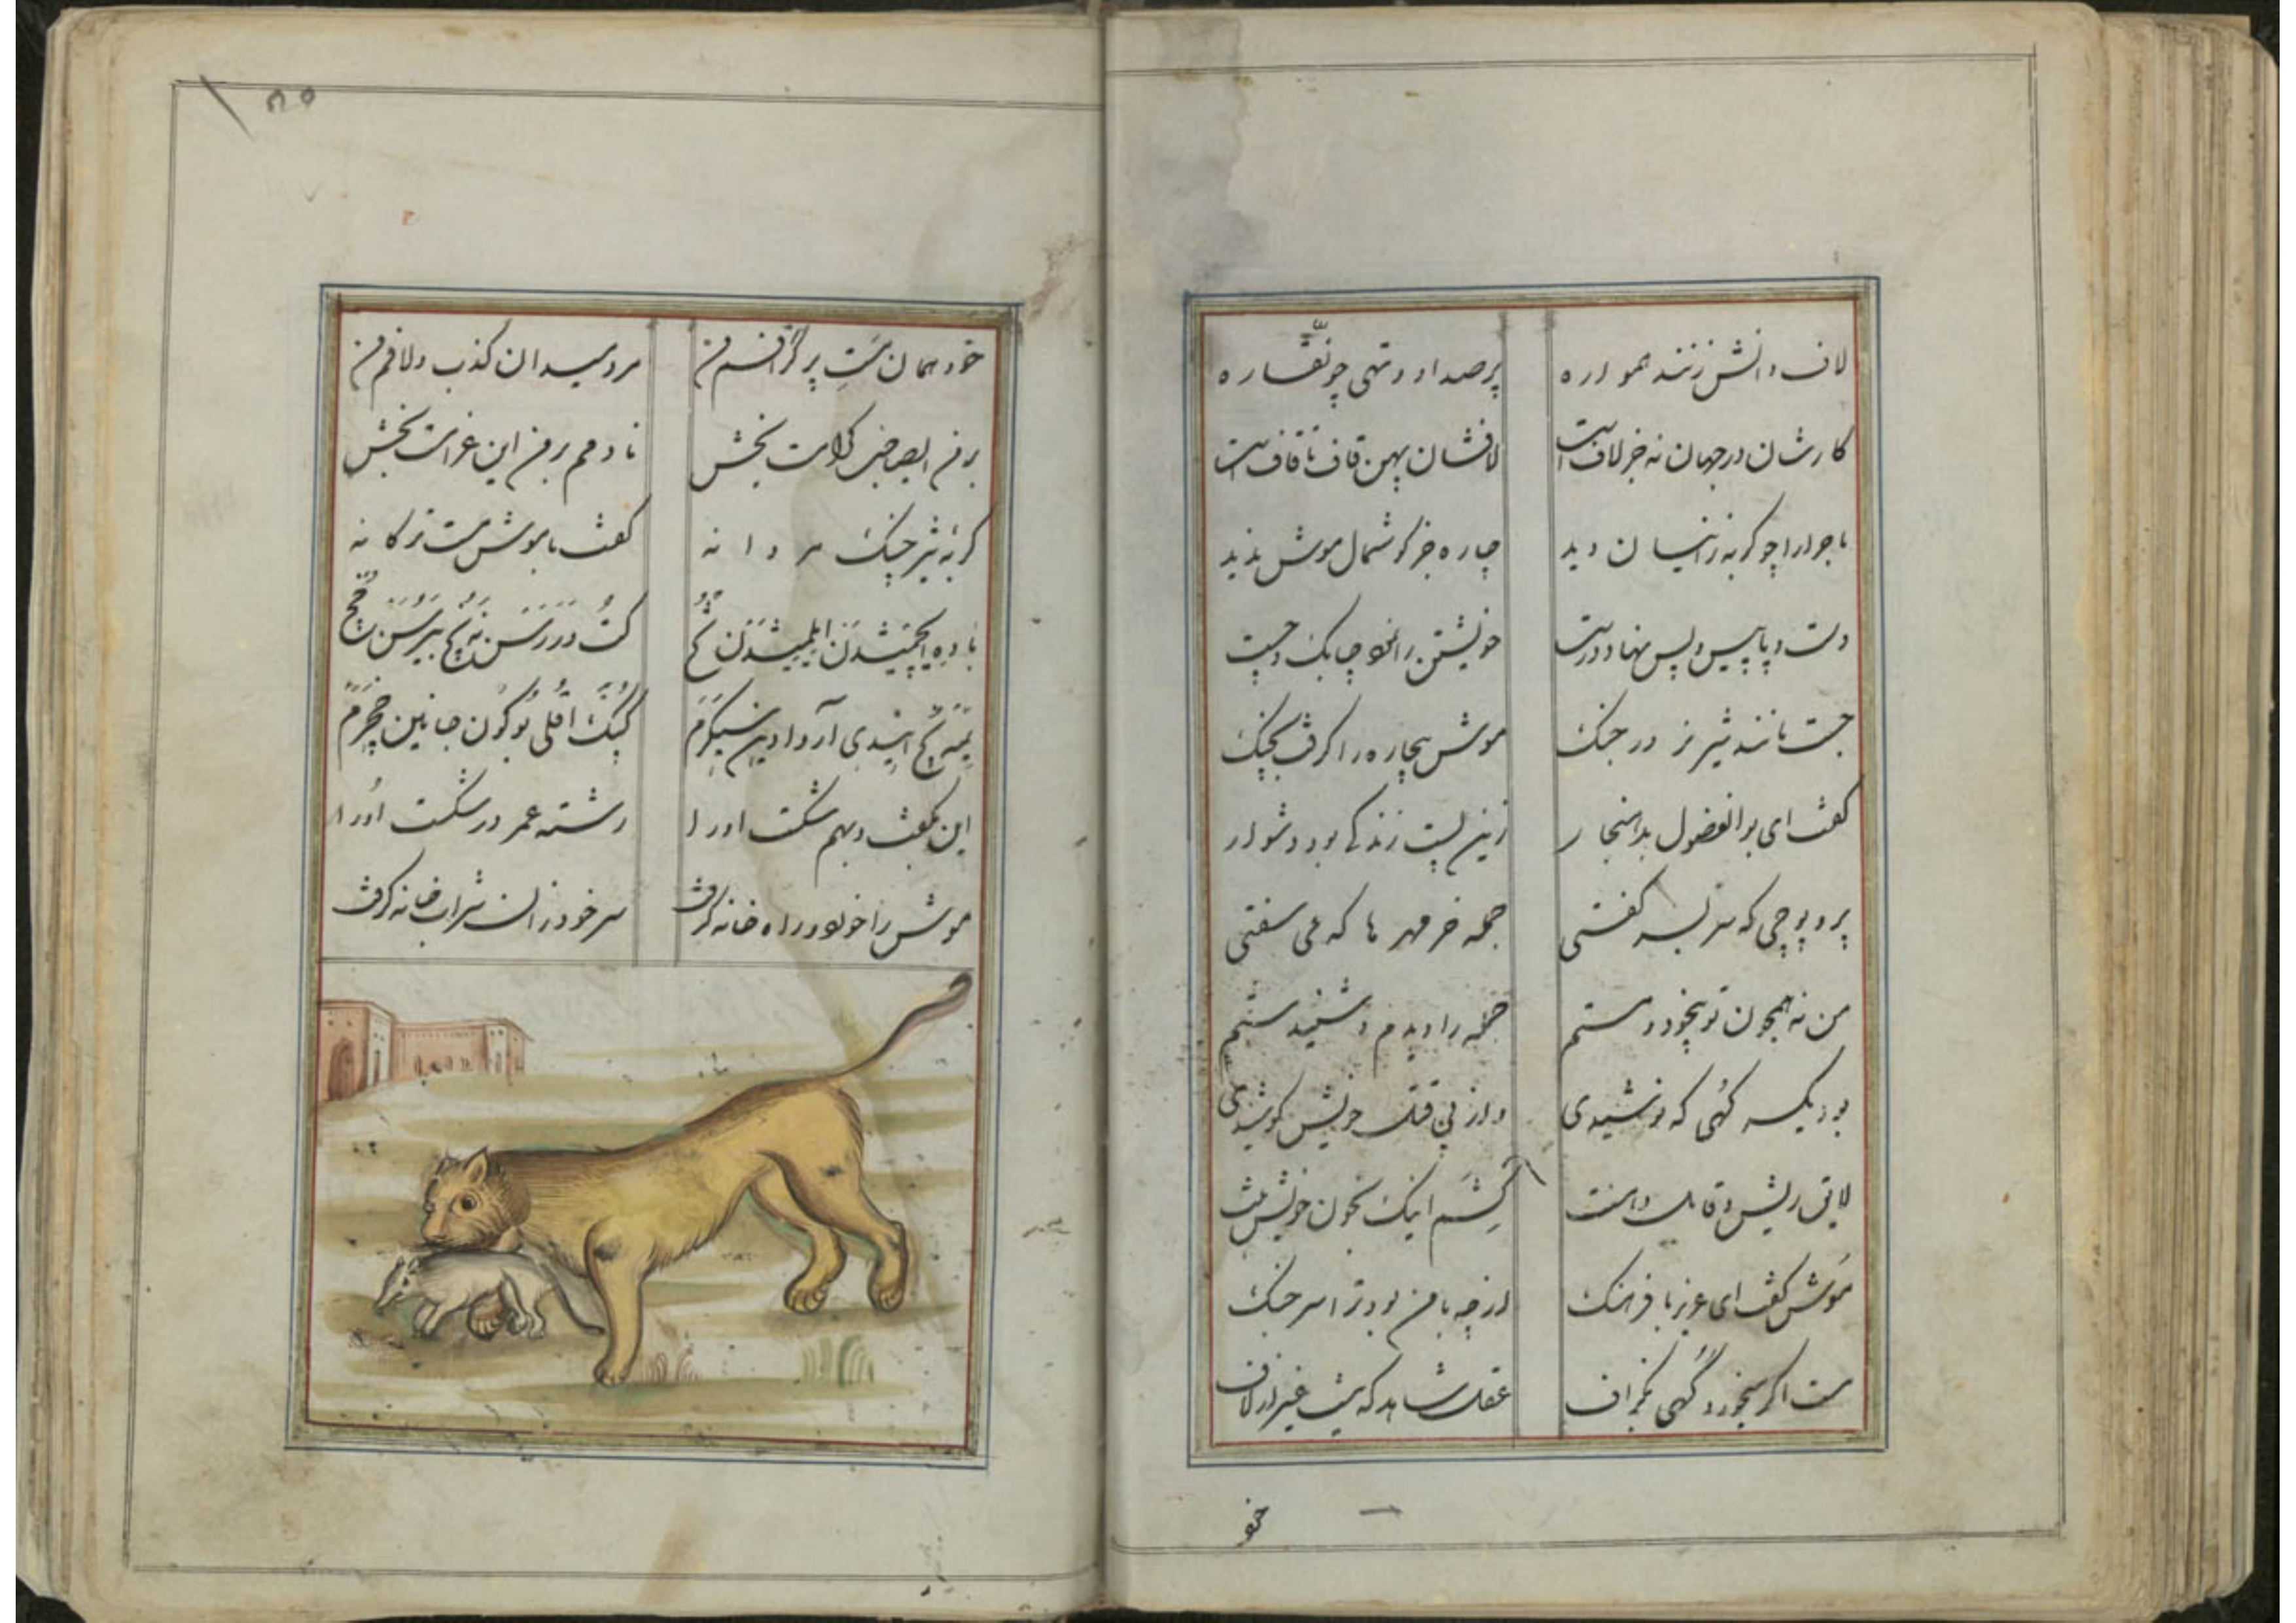 لاف دانش زنند همواره
پر صدا و تهی چو نقّاره
کارشان در جهان نه جز لافست
لافشان پهن قاف تا قافست
ماجرا را چو گربه زانسان دید
چاره جز گوشمال موش ندید
دست و پا پیش و پس نهاد درست
خویشتن را نمود چابک و چست
جست مانند شیر نر در جنگ
موش بیچاره را گرفت بچنگ
گفت ای بوالفضول بدهنجار
زین سپس زندگی بود دشوار
پر و پوچی که سر بسر گفتی
جمله خر مهر ها که می سفتی
من نه همچون تو بیخود و مستم
جمله را دیدم و شنیدستم
بود یکسر کهی که نوشیدی
و از پی قتل خویش کوشیدی
لایق ریش و قابل دامنت
کشم اینک بخون خویشتنت
موش گفت ای عزیز با فرهنگ
از چه با من بود ترا سر جنگ
مست اگر میخورد کهی بگزاف
عقل شاهد که نیست غیر از لاف
خو
خود همان مست پر گزافم من
مرد میدان کذب و لافم من
بر من ای صاحب کرامت بخش
نادمم بر من این غرامت بخش
گربه شیر چنگ مردانه
گفت با موش مست ترکانه
باده ایچمیشدن
کپک اقلی بوکون جانین
این بگفت و بهم شکست او را
رشته عمر درشکست او را
موش را خورد و راه خانه گرفت
سر خود زان شراب خانه گرفت